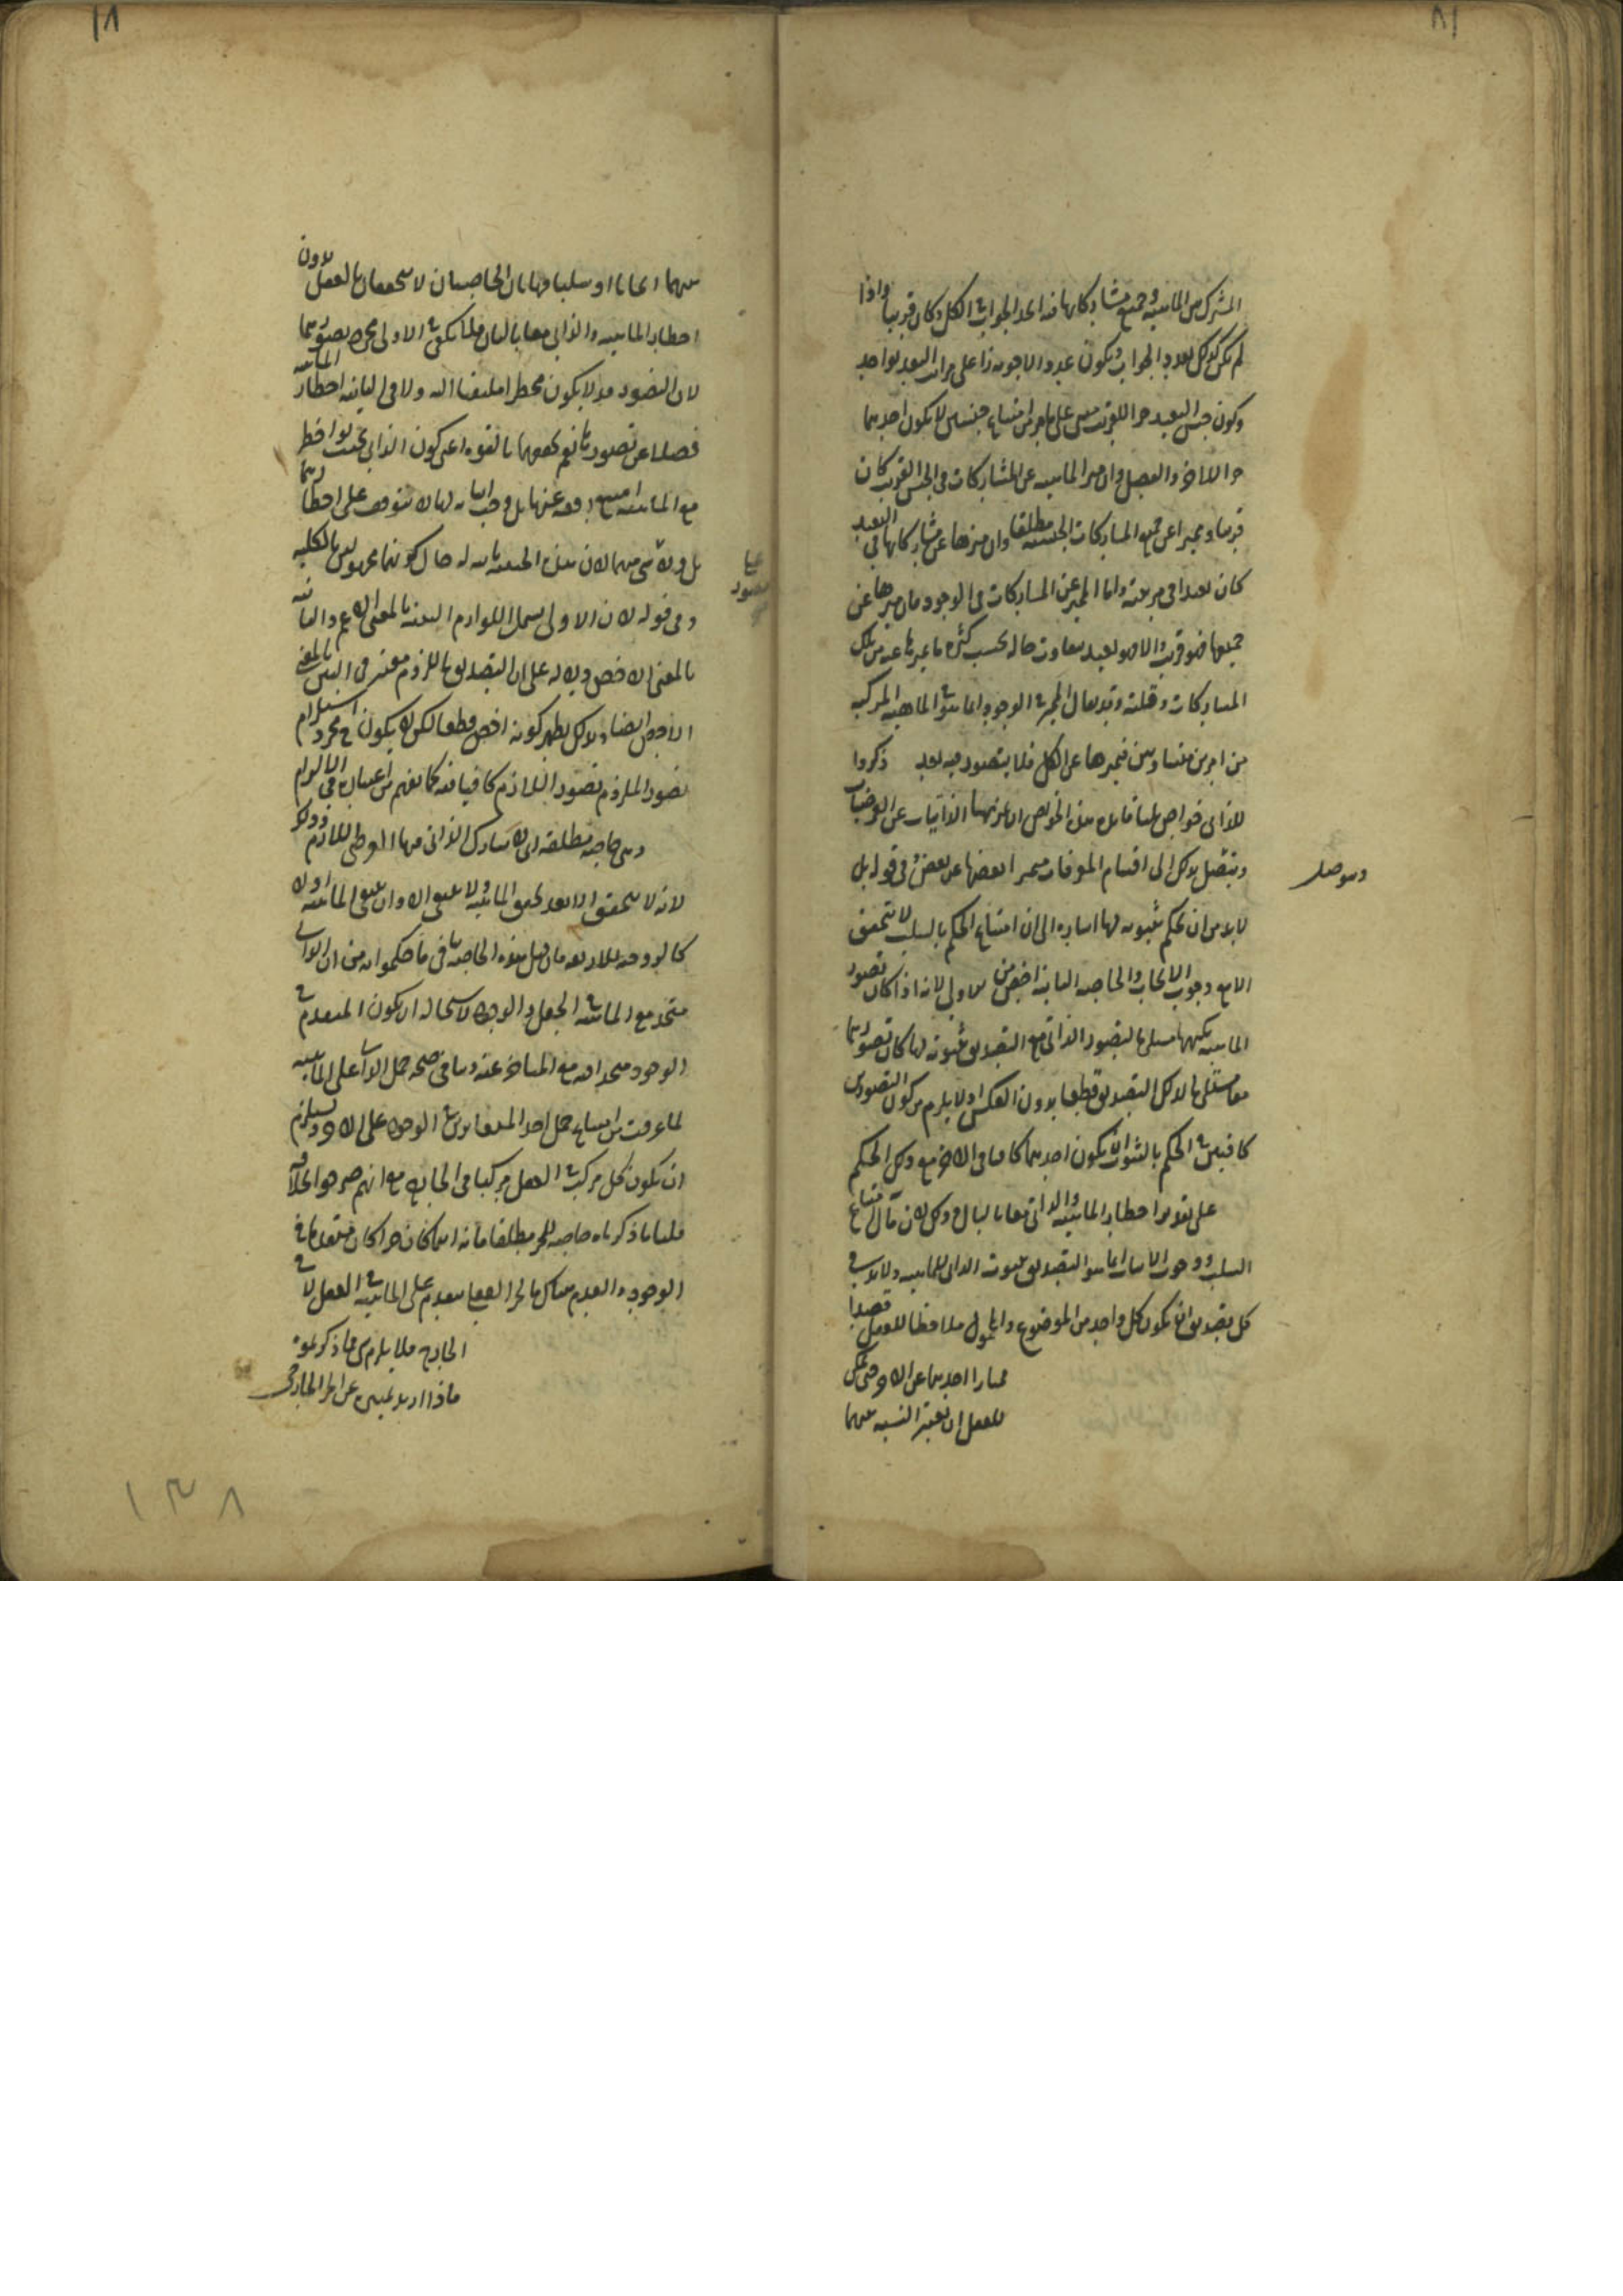 المشترك بين الماهية وجميع مشاركاتها فيه اتحد الجواب في الكل وكان قريبا واذا
لم يكن كذلك تعدد الجواب ويكون عدد الاجوبة زائدا على مراتب البعد بواحد
وكون جنس البعيد جزءا للقريب مبني على ما مر من امتناع جنسين لا يكون احدهما
جزءا للاخر والفصل ان ميز الماهية عن المشاركات في الجنس القريب كان
قريبا ومميزا عن جميع المشاركات الجنسية مطلقا وان ميزها عن مشاركاتها في البعيد
كان بعيدا في مرتبته واما المميز عن المشاركات في الوجود فان ميزها عن
جميعها فهو قريب والا فهو بعيد يتفاوت حاله بحسب كثرة ما يميزها عنه من تلك
المشاركات وقلته وقد يقال المميز في الوجود انما هو في الماهية المركبة
من امرين متساويين فيميزها عن الكل فلا يتصور فيه بعد ذكروا
للذاتي خواص ثلثا فان هذه الخواص انما تميز بها الذاتيات عن العرضيات
ويتصل بذلك الى اقسام المعرفات متميزا بعضها عن بعض وفي قوله بل
ويتوصل
لا بد من ان يحكم بثبوته لها اشارة الى ان امتناع الحكم بالسلب لا يتحقق
الا مع وجوب الايجاب والخاصة الثانية اخص من الاولى لانه اذا كان تصور
الماهية بكنهها مستلزما لتصور الذاتي مع التصديق بثبوته لها كان تصورهما
معا مستلزما لذلك التصديق قطعا بدون العكس اذ لا يلزم من كون التصورين
كافيين في الحكم بالثبوت ان يكون احدهما كافيا في الاخر مع ذلك الحكم
على تقدير اخطار الماهية والذاتي معا بالبال وذلك لان قال امتناع
السلب ووجوب الاثبات انما هو التصديق بثبوت الذاتي للماهية ولا بد في
كل تصديق ان يكون كل واحد من الموضوع والمحمول ملاحظا للعقل قصدا
ممتازا احدهما عن الاخر حتى يمكن
للعقل ان يعتبر النسبة بينهما
بينهما ايجابا او سلبا فهاتان الخاصيتان لا تتحققان بالفعل بدون
اخطار الماهية والذاتي معا بالبال فلما يكف في الاولى مجرد تصورهما
لان التصور قد لا يكون مخطرا ملتفتا اليه ولا في الثانية اخطار الماهية
فضلا عن تصورها نعم تحققها بالقوة اعني كون الذاتي بحيث لو اخطر
مع الماهية امتنع رفعه عنها بل وجب اثباته لها لا يتوقف على اخطارهما
بل ولا شيء منهما لان هذه الحيثية ثابتة له حال كونهما مجهولين بالكلية
وفي قوله لان الاولى يشمل اللوازم البينة بالمعنى الاعم والثانية
بالمعنى الاخص دلالة على ان التصديق باللزوم معتبر في البين بالمعنى
الاخص ايضا وبذلك يظهر كونه اخص قطعا لكن لا يكون ح مجرد استلزام
تصور الملزوم تصور اللازم كافيا فيه كما يفهم من اعتباره في الالتزام
وهي خاصة مطلقة اي لا يشارك الذاتي فيها العرضي اللازم وذلك
لانه لا يتحقق الا بعد تحقق الماهية ولا يعقل الا وان تعقل الماهية اولا
كالزوجية للاربعة فان قيل هذه الخاصة تنافي ما حكموا به من ان الذاتي
متحد مع الماهية في الجعل والوجود لاستحالة ان يكون المتقدم في
الوجود متحدا فيه مع المتأخر عنه وينافي صحة حمل الذاتي على الماهية
لما عرفت من امتناع حمل احد المتغايرين في الوجود على الاخر ويستلزم
ان يكون كل مركب في العقل مركبا في الخارج مع انهم صرحوا بخلافه
قلنا ما ذكرناه خاصة للجزء مطلقا فانه اينما كان جزءا كان متقدما في
الوجود والعدم هناك فالجزء العقلي متقدم على الماهية في العقل لا في
الخارج فلا يلزم شيء مما ذكرتموه
فاذا اريد تمييزه عن الجزء الخارجي
١٣٨